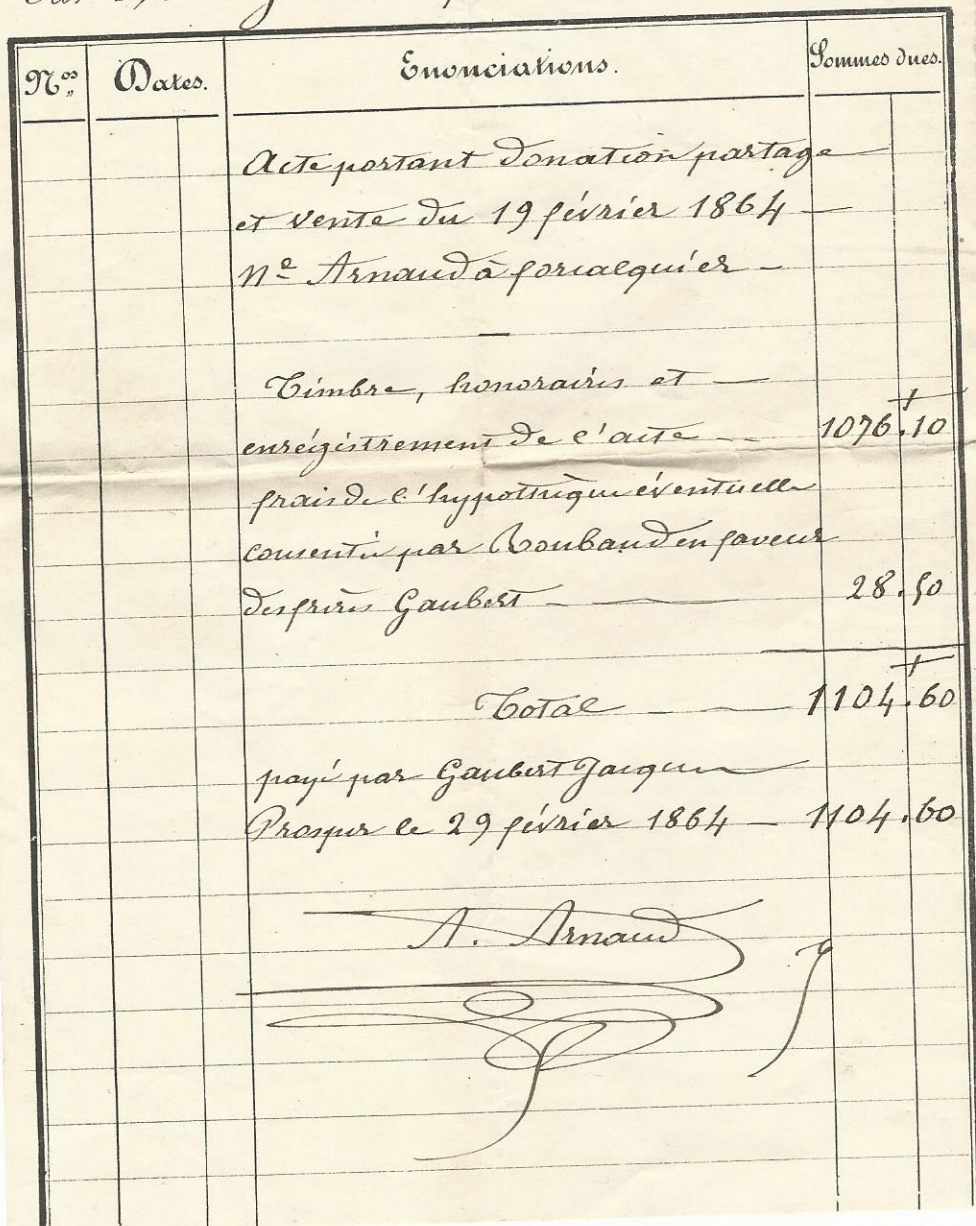 Nos Dates. Enonciations. Sommes dues.
Acte portant Donation partage
et vente du 19 février 1864
Ne Arnaud à forcalquier
Timbre, honoraires et
enrégistrement de l'acte 1076.10
frais de l'hypothèque éventuelle
consentie par Roubaud en faveur
des frères Gaubert 28.50
Total 1104.60
payé par Gaubert Jacques
Prosper le 29 février 1864 1104.60
A. Arnaud